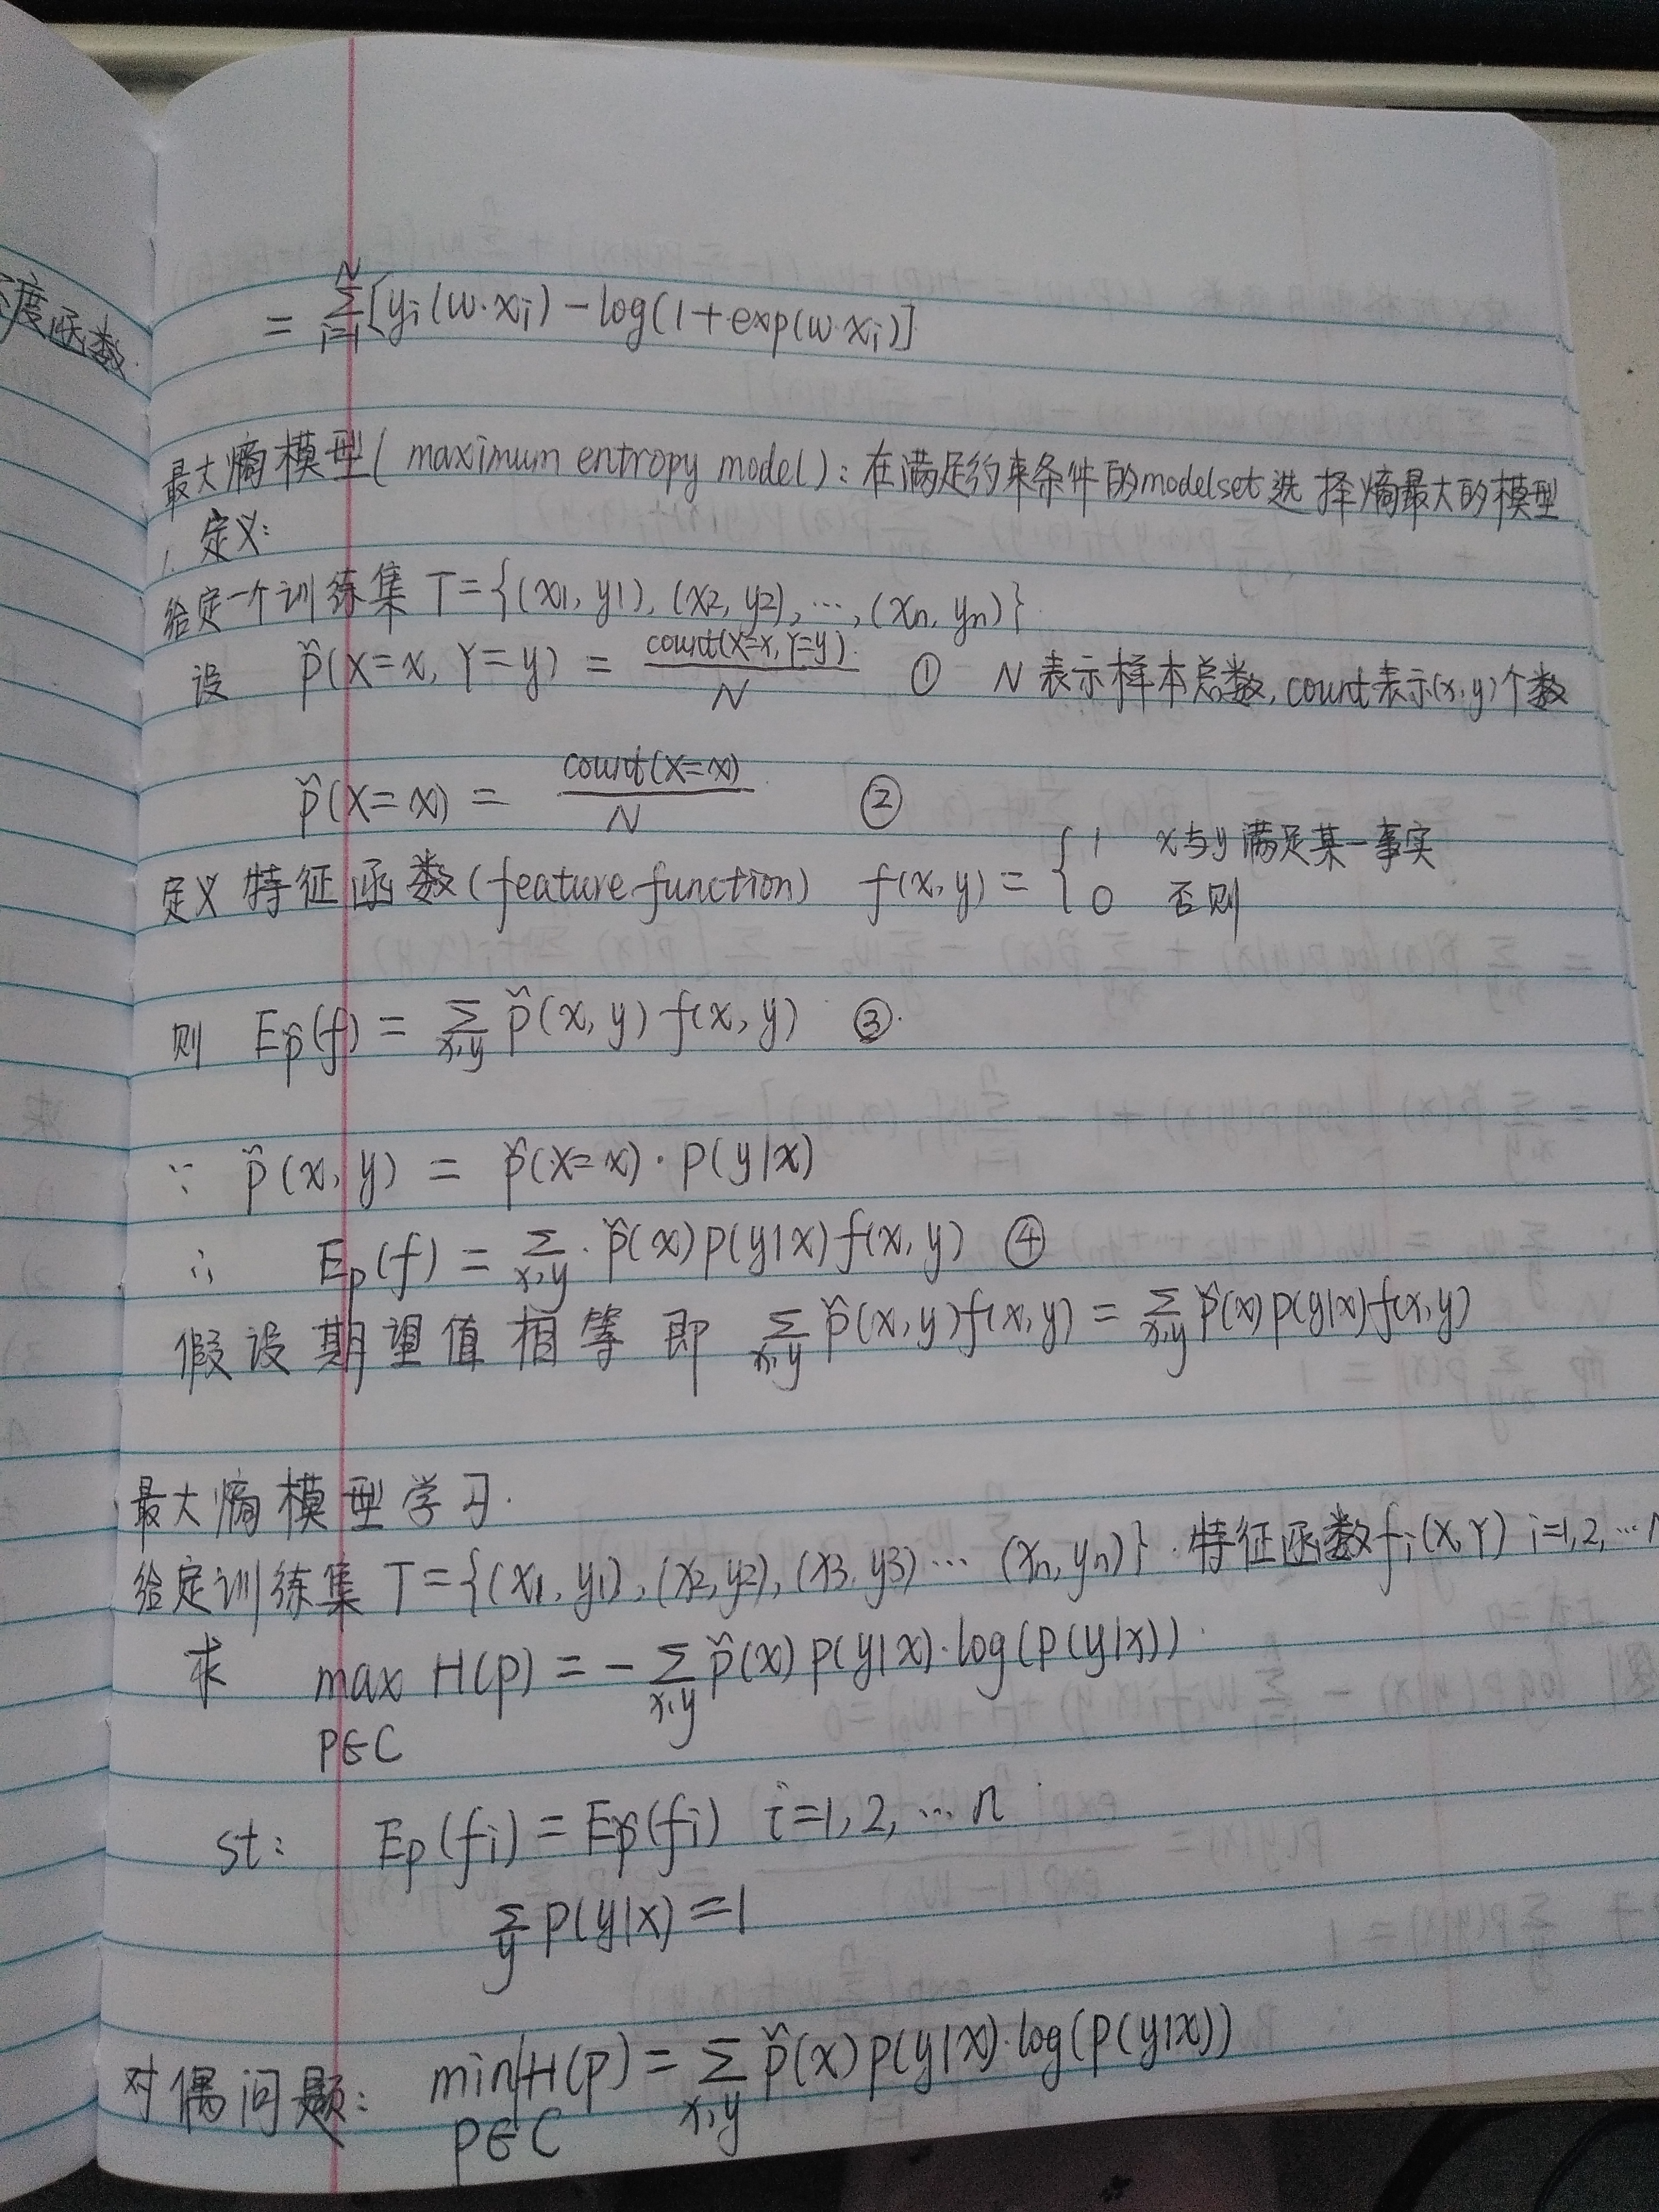 度函数
= ∑_{i=1}^{N} [yi(w·xi) − log(1+exp(w·xi)]
最大熵模型( maximum entropy model ): 在满足约束条件的modelset选择熵最大的模型
1. 定义:
给定一个训练集 T={(x1, y1), (x2, y2), …, (xn, yn)}.
设 p̌(X=x, Y=y) = count(X=x, Y=y) / N ① N表示样本总数, count表示(x,y)个数
p̌(X=x) = count(X=x) / N ②
定义特征函数(feature function) f(x,y) = { 1 x与y满足某一事实
0 否则
则 Ep̌(f) = ∑_{x,y} p̌(x,y) f(x,y) ③.
∵ p̌(x,y) = p̌(X=x)·p(y|x)
∴ Ep(f) = ∑_{x,y} p̌(x)p(y|x)f(x,y) ④
假设期望值相等 即 ∑_{x,y} p̌(x,y)f(x,y) = ∑_{x,y} p̌(x)p(y|x)f(x,y)
最大熵模型学习.
给定训练集 T={(x1, y1), (x2, y2), (x3, y3) … (xn, yn)}. 特征函数fi(X,Y) i=1,2,…
求 max H(p) = −∑_{x,y} p̌(x)p(y|x)·log(p(y|x)).
P∈C
st: Ep(fi) = Ep̌(fi) i=1,2,…n
∑_y p(y|x) = 1
对偶问题: min H(p) = ∑_{x,y} p̌(x)p(y|x)·log(p(y|x))
P∈C